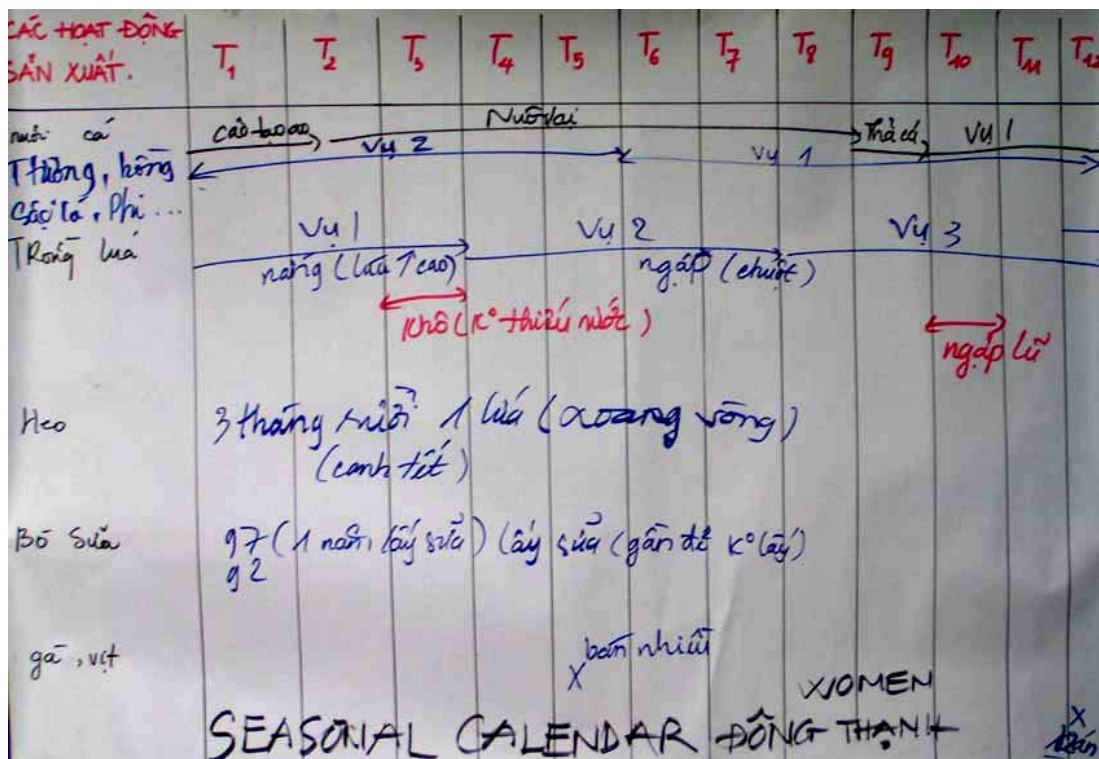 CÁC HOẠT ĐỘNG SẢN XUẤT.
T1 T2 T3 T4 T5 T6 T7 T8 T9 T10 T11 T12
nuôi cá
cải tạo ao Nuôi lại Thả cá Vụ 1
Vụ 2 Vụ 1
Tường, hồng
Sặc lá, Phi...
Vụ 1 Vụ 2 Vụ 3
TRồng lúa
nắng (lúa ↑ cao) ngập (chuột)
Khô (K° thiếu nước)
ngập lũ
Heo
3 tháng rưỡi 1 lứa (xoang vòng)
(canh tết)
Bò Sữa
97 (1 năm lấy sữa) lấy sữa (gần đẻ K° lấy)
92
gà, vịt
bán nhiều
X
WOMEN
SEASONAL CALENDAR ĐÔNG THẠNH
X
bán